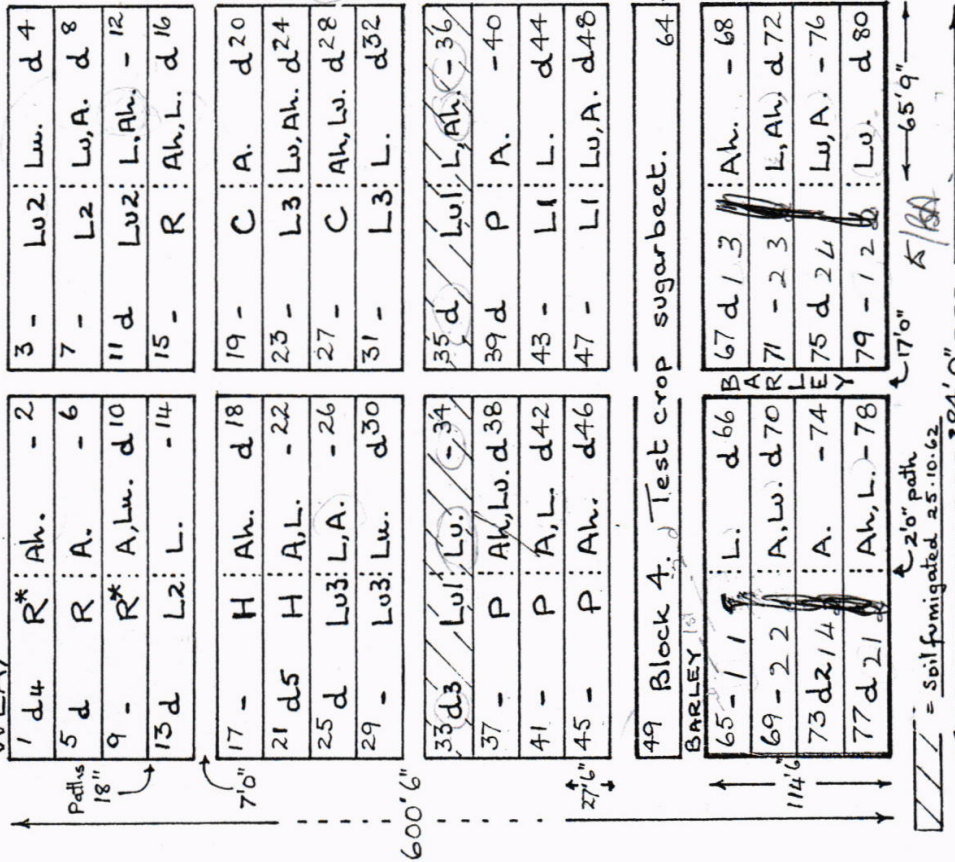 1 d4 R* Ah. - 2
5 d R A. - 6
9 - R* A, Lu. d 10
13 d L2 L. - 14
3 - Lu2 Lu. d 4
7 - L2 Lu, A. d 8
11 d Lu2 L, Ah. - 12
15 - R Ah, L. d 16
Paths 18"
7'0"
17 - H Ah. d 18
21 d5 H A, L. - 22
25 d Lu3 L, A. - 26
29 - Lu3 Lu. d 30
19 - C A. d 20
23 - L3 Lu, Ah. d 24
27 - C Ah, Lu. d 28
31 - L3 L. d 32
600'6"
33 d3 Lu1 Lu. - 34
37 - P Ah, Lu. d 38
41 - P A, L. d 42
45 - P Ah. d 46
35 d Lu1 L, Ah. - 36
39 d P A. - 40
43 - L1 L. d 44
47 - L1 Lu, A. d 48
27'6"
49 Block 4. Test crop sugarbeet. 64
BARLEY
65 - 1 1 L. d 66
69 - 2 2 A, Lu. d 70
73 d 2 1 4 A. - 74
77 d 2 1 Ah, L. - 78
BARLEY
67 d 1 3 Ah. - 68
71 - 2 3 L, Ah. d 72
75 d 2 4 Lu, A. - 76
79 - 1 2 Lu. d 80
114'6"
2'0" path
17'0"
65'9"
= Soil fumigated 25.10.62